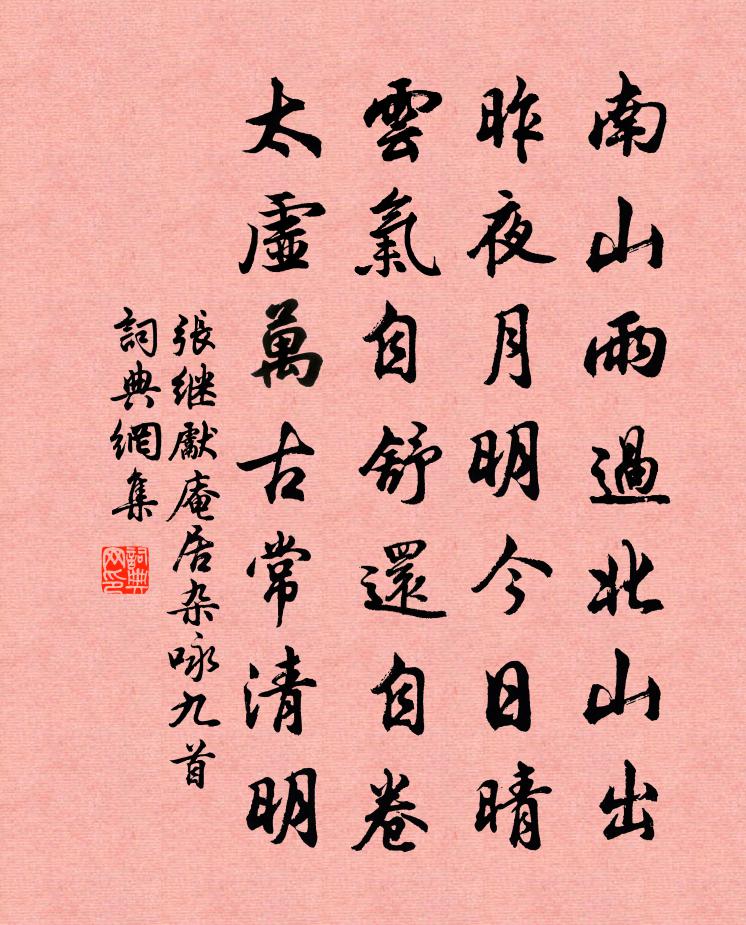 南山雨過北山出
昨夜月明今日晴
雲氣自舒還自卷
太虛萬古常清明
張继獻庵居杂咏九首
詞典網集
詞典网印